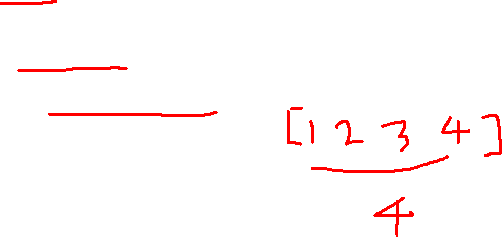 [1 2 3 4]
4